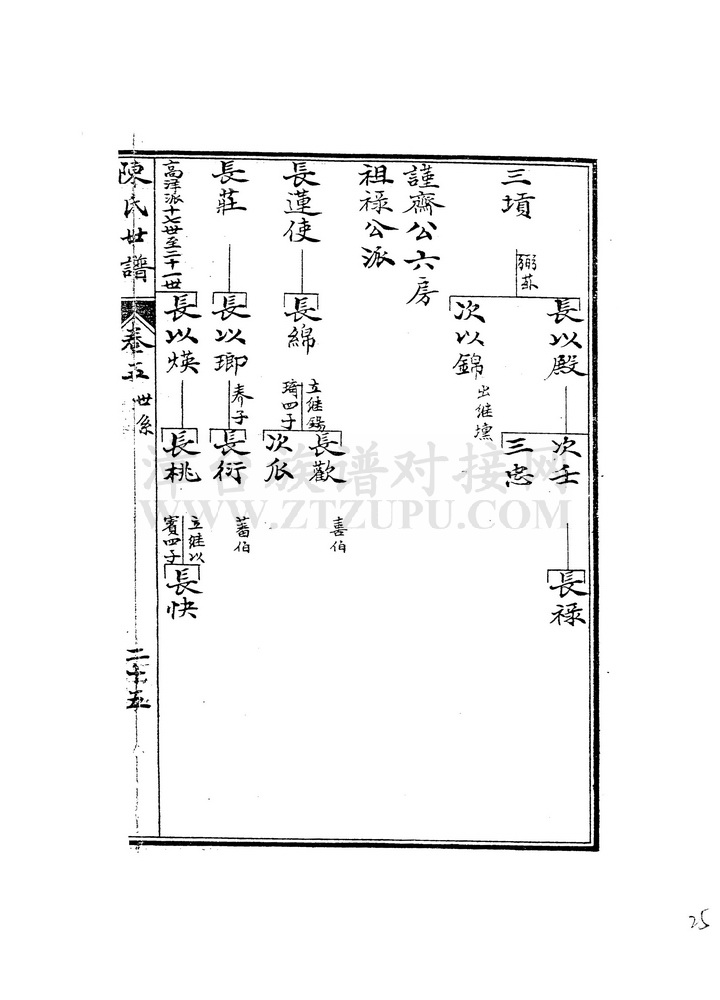 三墳
弼菰
長以殿
次壬
長祿
三忠
次以錦
出繼壎
謹齋公六房
祖祿公派
長蓮使
長綿
立繼錫
琦四子
長歡
喜伯
次瓜
長莊
長以瑯
養子
長衍
蕃伯
高洋派十七世至二十一世
長以煐
長桃
立繼以
賓四子
長快
陳氏世譜
卷五
世系
二十五
泽台族谱对接网
WWW.ZTZUPU.COM
25